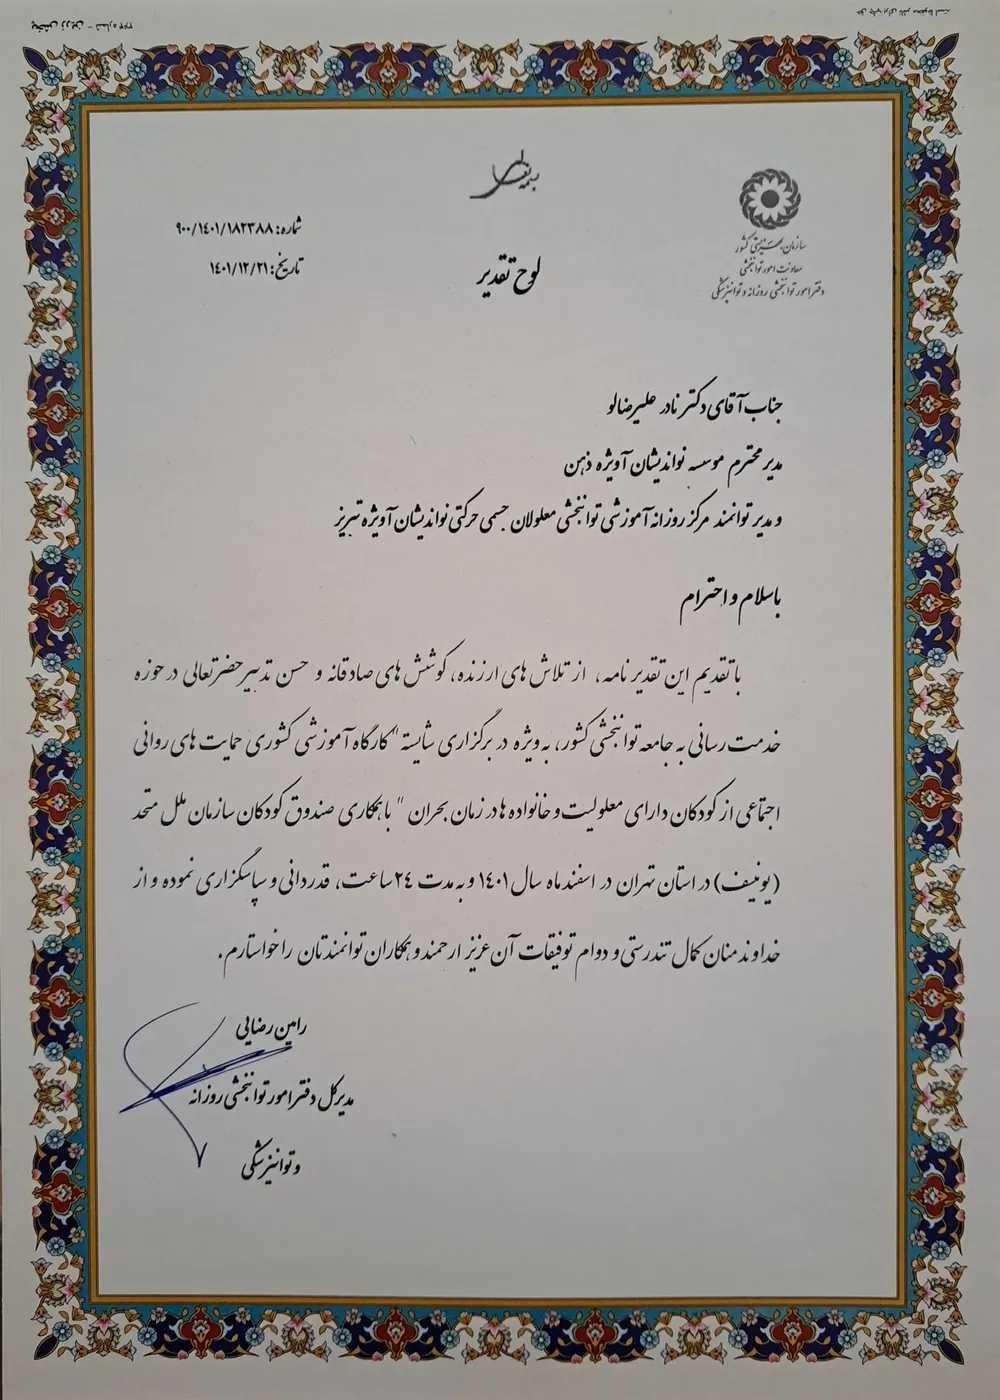 بسمه تعالی
سازمان بهزیستی کشور
معاونت امور توانبخشی
دفتر امور توانبخشی روزانه و توانپزشکی
شماره: ۹۰۰/۱٤۰۱/۱۸۲۳۸۸
تاریخ: ۱٤۰۱/۱۲/۲۱
لوح تقدیر
جناب آقای دکتر نادر علیرضالو
مدیر محترم موسسه نواندیشان آویژه ذهن
و مدیر توانمند مرکز روزانه آموزشی توانبخشی معلولان جسمی حرکتی نواندیشان آویژه تبریز
باسلام و احترام
با تقدیم این تقدیر نامه، از تلاش های ارزنده، کوشش های صادقانه و حسن تدبیر حضرتعالی در حوزه
خدمت رسانی به جامعه توانبخشی کشور، به ویژه در برگزاری شایسته "کارگاه آموزشی کشوری حمایت های روانی
اجتماعی از کودکان دارای معلولیت و خانواده ها در زمان بحران " با همکاری صندوق کودکان سازمان ملل متحد
(یونیسف) در استان تهران در اسفند ماه سال ۱٤۰۱ و به مدت ۲٤ ساعت، قدردانی و سپاسگزاری نموده و از
خداوند منان کمال تندرستی و دوام توفیقات آن عزیز ارجمند و همکاران توانمندتان را خواستارم.
رامین رضایی
مدیرکل دفتر امور توانبخشی روزانه
و توانپزشکی